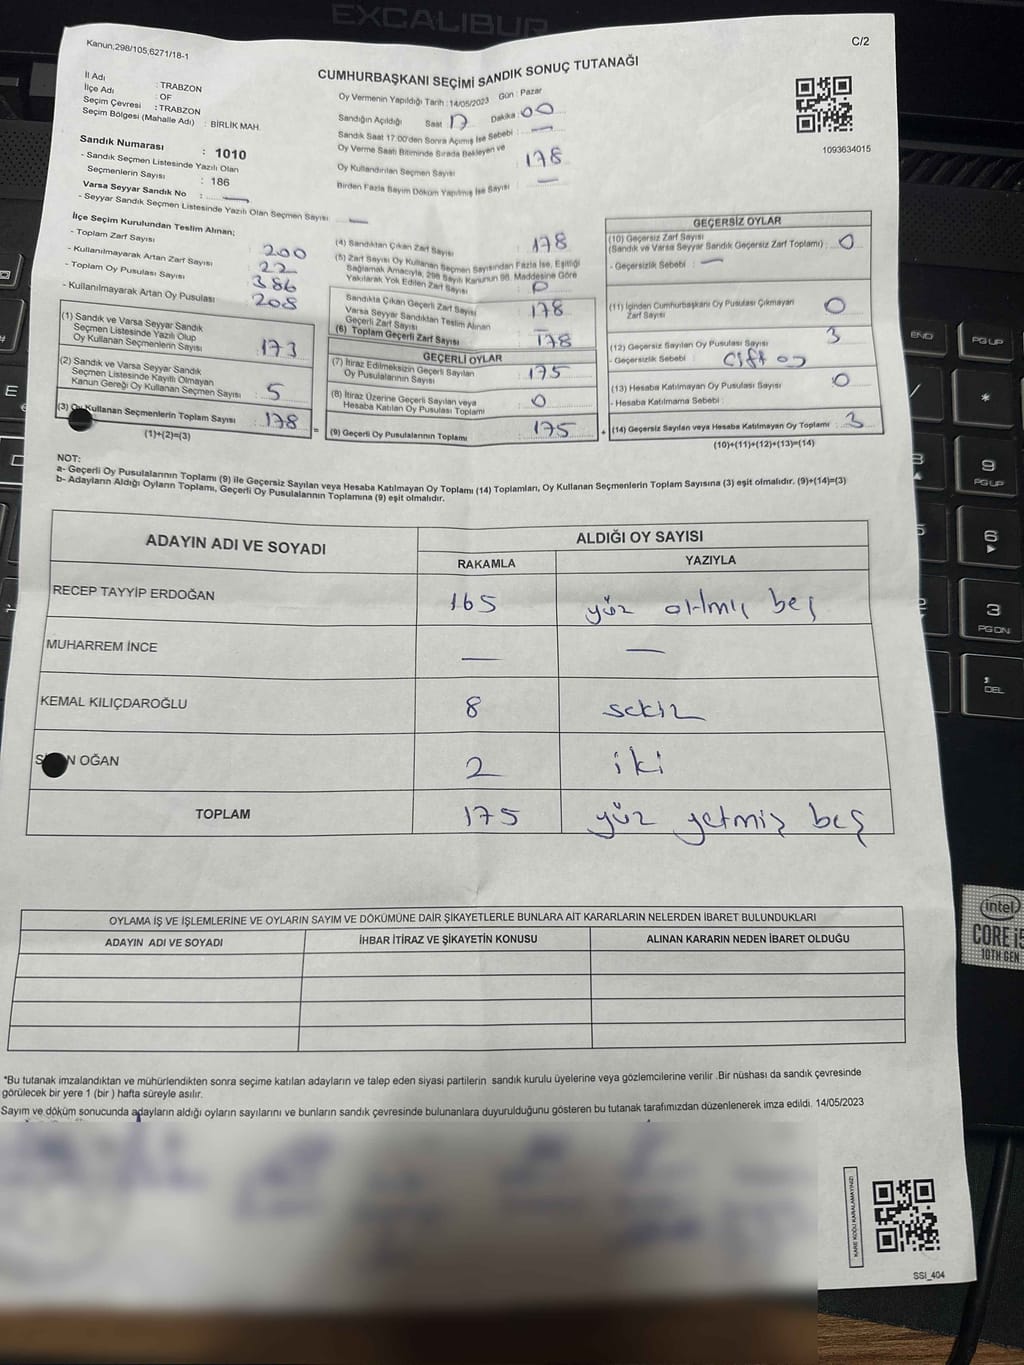 EXCALIBUR
Kanun,298/105,6271/18-1
C/2
CUMHURBAŞKANI SEÇİMİ SANDIK SONUÇ TUTANAĞI
İl Adı : TRABZON
İlçe Adı : OF
Seçim Çevresi : TRABZON
Seçim Bölgesi (Mahalle Adı) : BİRLİK MAH.
Sandık Numarası : 1010
- Sandık Seçmen Listesinde Yazılı Olan
Seçmenlerin Sayısı : 186
Varsa Seyyar Sandık No : —
- Seyyar Sandık Seçmen Listesinde Yazılı Olan Seçmen Sayısı —
Oy Vermenin Yapıldığı Tarih : 14/05/2023 Gün : Pazar
Sandığın Açıldığı Saat 17 Dakika : 00
Sandık Saat 17:00'den Sonra Açımış İse Sebebi : —
Oy Verme Saati Bitiminde Sırada Bekleyen ve
Oy Kullandırılan Seçmen Sayısı : 178
Birden Fazla Sayım Döküm Yapılmış İse Sayısı : —
1093634015
İlçe Seçim Kurulundan Teslim Alınan;
- Toplam Zarf Sayısı 200
- Kullanılmayarak Artan Zarf Sayısı 22
- Toplam Oy Pusulası Sayısı 386
- Kullanılmayarak Artan Oy Pusulası 208
(1) Sandık ve Varsa Seyyar Sandık
Seçmen Listesinde Yazılı Olup
Oy Kullanan Seçmenlerin Sayısı : 173
(2) Sandık ve Varsa Seyyar Sandık
Seçmen Listesinde Kayıtlı Olmayan
Kanun Gereği Oy Kullanan Seçmen Sayısı : 5
(3) Oy Kullanan Seçmenlerin Toplam Sayısı : 178
(1)+(2)=(3)
(4) Sandıktan Çıkan Zarf Sayısı 178
(5) Zarf Sayısı Oy Kullanan Seçmen Sayısından Fazla İse, Eşitliği
Sağlamak Amacıyla, 298 Sayılı Kanunun 98. Maddesine Göre
Yakılarak Yok Edilen Zarf Sayısı : 0
Sandıkta Çıkan Geçerli Zarf Sayısı : 178
Varsa Seyyar Sandıktan Teslim Alınan
Geçerli Zarf Sayısı : —
(6) Toplam Geçerli Zarf Sayısı : 178
GEÇERLİ OYLAR
(7) İtiraz Edilmeksizin Geçerli Sayılan
Oy Pusulalarının Sayısı : 175
(8) İtiraz Üzerine Geçerli Sayılan veya
Hesaba Katılan Oy Pusulası Toplamı : 0
(9) Geçerli Oy Pusulalarının Toplamı : 175
GEÇERSİZ OYLAR
(10) Geçersiz Zarf Sayısı
(Sandık ve Varsa Seyyar Sandık Geçersiz Zarf Toplamı) : 0
- Geçersizlik Sebebi : —
(11) İçinden Cumhurbaşkanı Oy Pusulası Çıkmayan
Zarf Sayısı : 0
(12) Geçersiz Sayılan Oy Pusulası Sayısı : 3
- Geçersizlik Sebebi : Çift oy
(13) Hesaba Katılmayan Oy Pusulası Sayısı : 0
- Hesaba Katılmama Sebebi :
(14) Geçersiz Sayılan veya Hesaba Katılmayan Oy Toplamı : 3
(10)+(11)+(12)+(13)=(14)
NOT:
a- Geçerli Oy Pusulalarının Toplamı (9) ile Geçersiz Sayılan veya Hesaba Katılmayan Oy Toplamı (14) Toplamları, Oy Kullanan Seçmenlerin Toplam Sayısına (3) eşit olmalıdır. (9)+(14)=(3)
b- Adayların Aldığı Oyların Toplamı, Geçerli Oy Pusulalarının Toplamına (9) eşit olmalıdır.
ADAYIN ADI VE SOYADI
ALDIĞI OY SAYISI
RAKAMLA YAZIYLA
RECEP TAYYİP ERDOĞAN 165 yüz altmış beş
MUHARREM İNCE — —
KEMAL KILIÇDAROĞLU 8 sekiz
S N OĞAN 2 iki
TOPLAM 175 yüz yetmiş beş
OYLAMA İŞ VE İŞLEMLERİNE VE OYLARIN SAYIM VE DÖKÜMÜNE DAİR ŞİKAYETLERLE BUNLARA AİT KARARLARIN NELERDEN İBARET BULUNDUKLARI
ADAYIN ADI VE SOYADI İHBAR İTİRAZ VE ŞİKAYETİN KONUSU ALINAN KARARIN NEDEN İBARET OLDUĞU
*Bu tutanak imzalandıktan ve mühürlendikten sonra seçime katılan adayların ve talep eden siyasi partilerin sandık kurulu üyelerine veya gözlemcilerine verilir .Bir nüshası da sandık çevresinde
görülecek bir yere 1 (bir ) hafta süreyle asılır.
Sayım ve döküm sonucunda adayların aldığı oyların sayılarını ve bunların sandık çevresinde bulunanlara duyurulduğunu gösteren bu tutanak tarafımızdan düzenlenerek imza edildi. 14/05/2023
KARE KODU KARALAMAYINIZ!
SSİ_404
END
PG UP
*
9
PG UP
6
3
PG DN
DEL
E
intel
CORE i5
10TH GEN